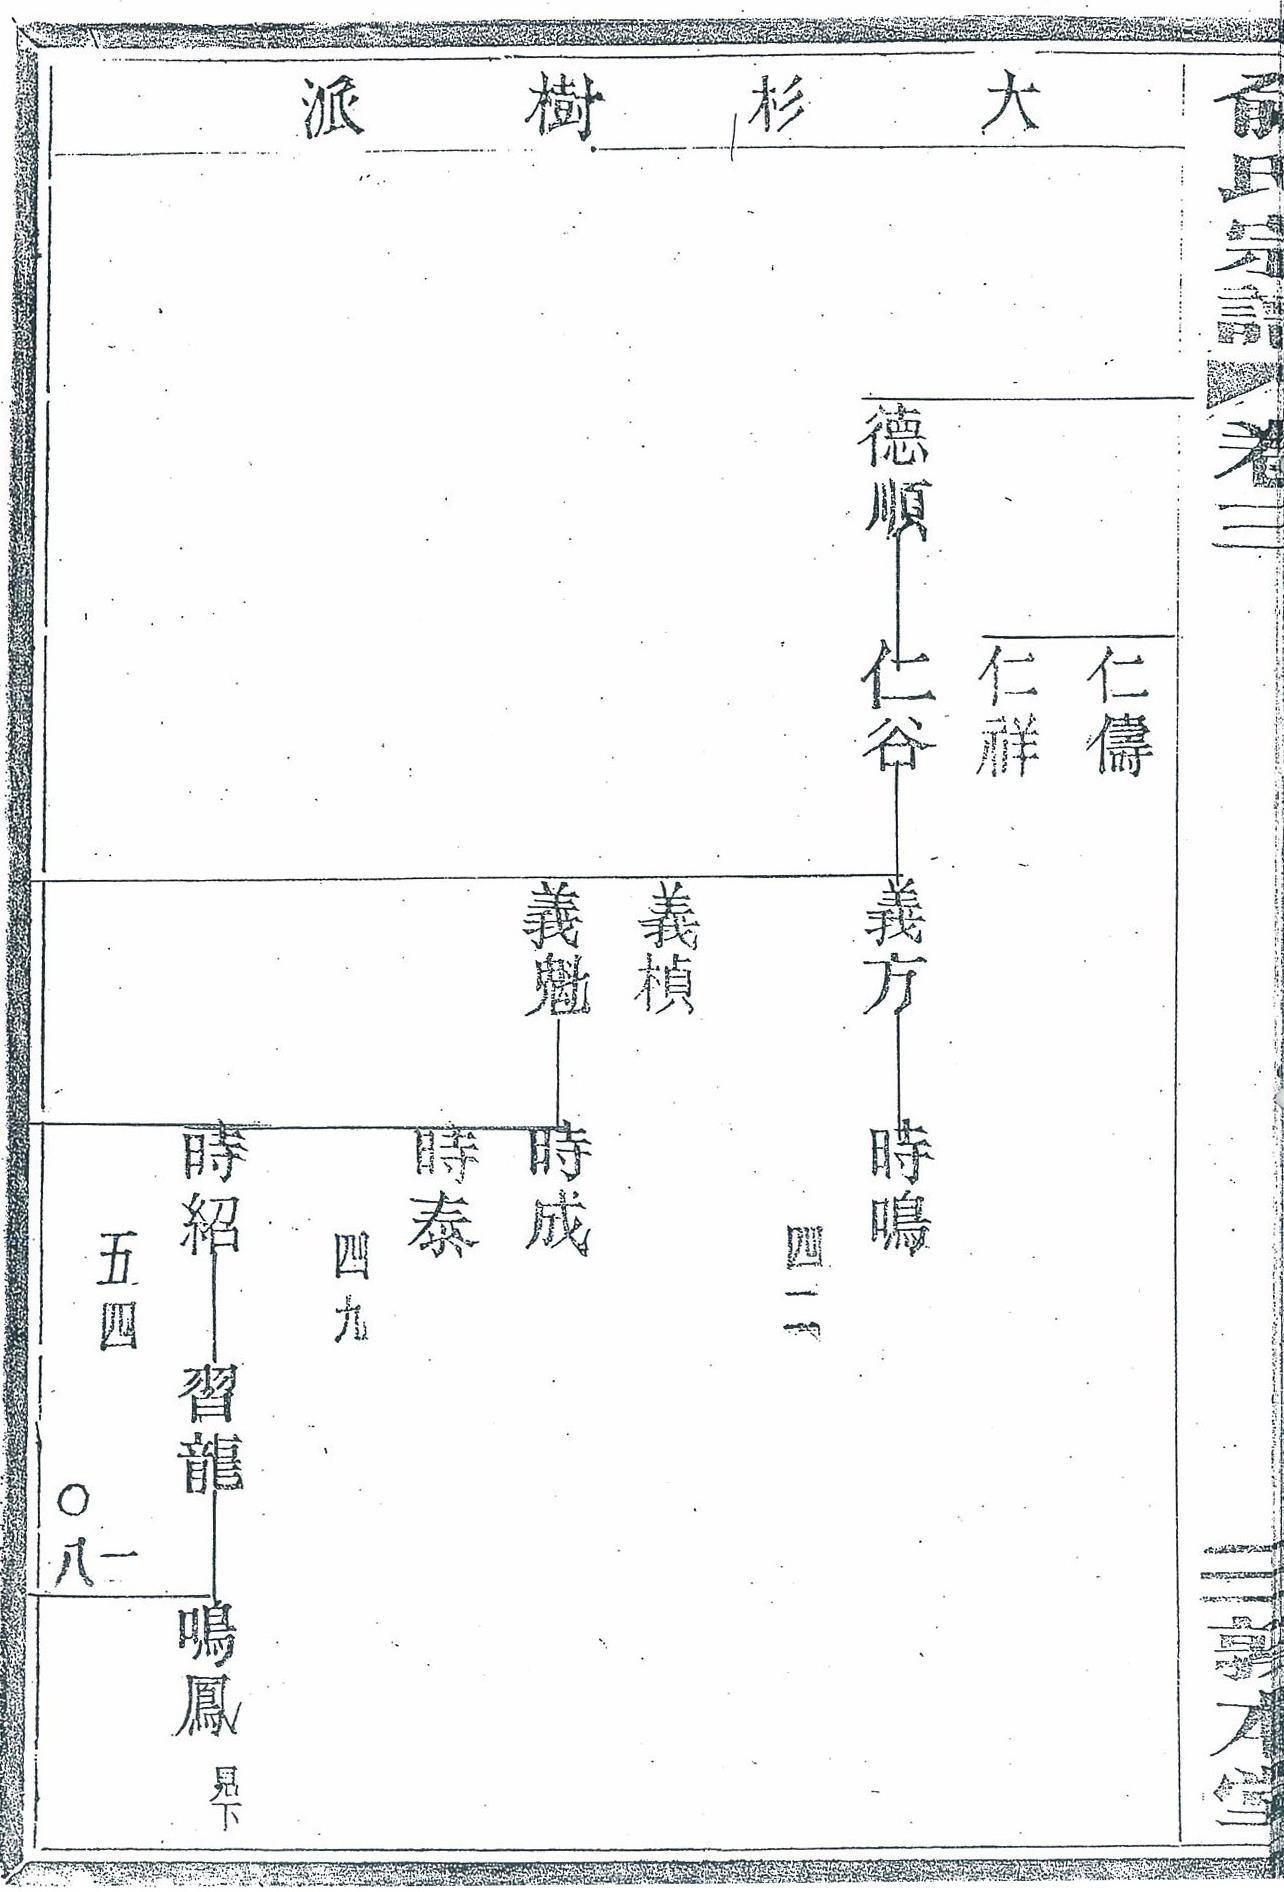 俞氏宗譜
卷三
三
敦本堂
大杉樹派
仁儔
仁祥
德順
仁谷
義方
時鳴
四二
義楨
義魁
時成
時泰
四九
時紹
習龍
鳴鳳
見下
五四
一
〇八